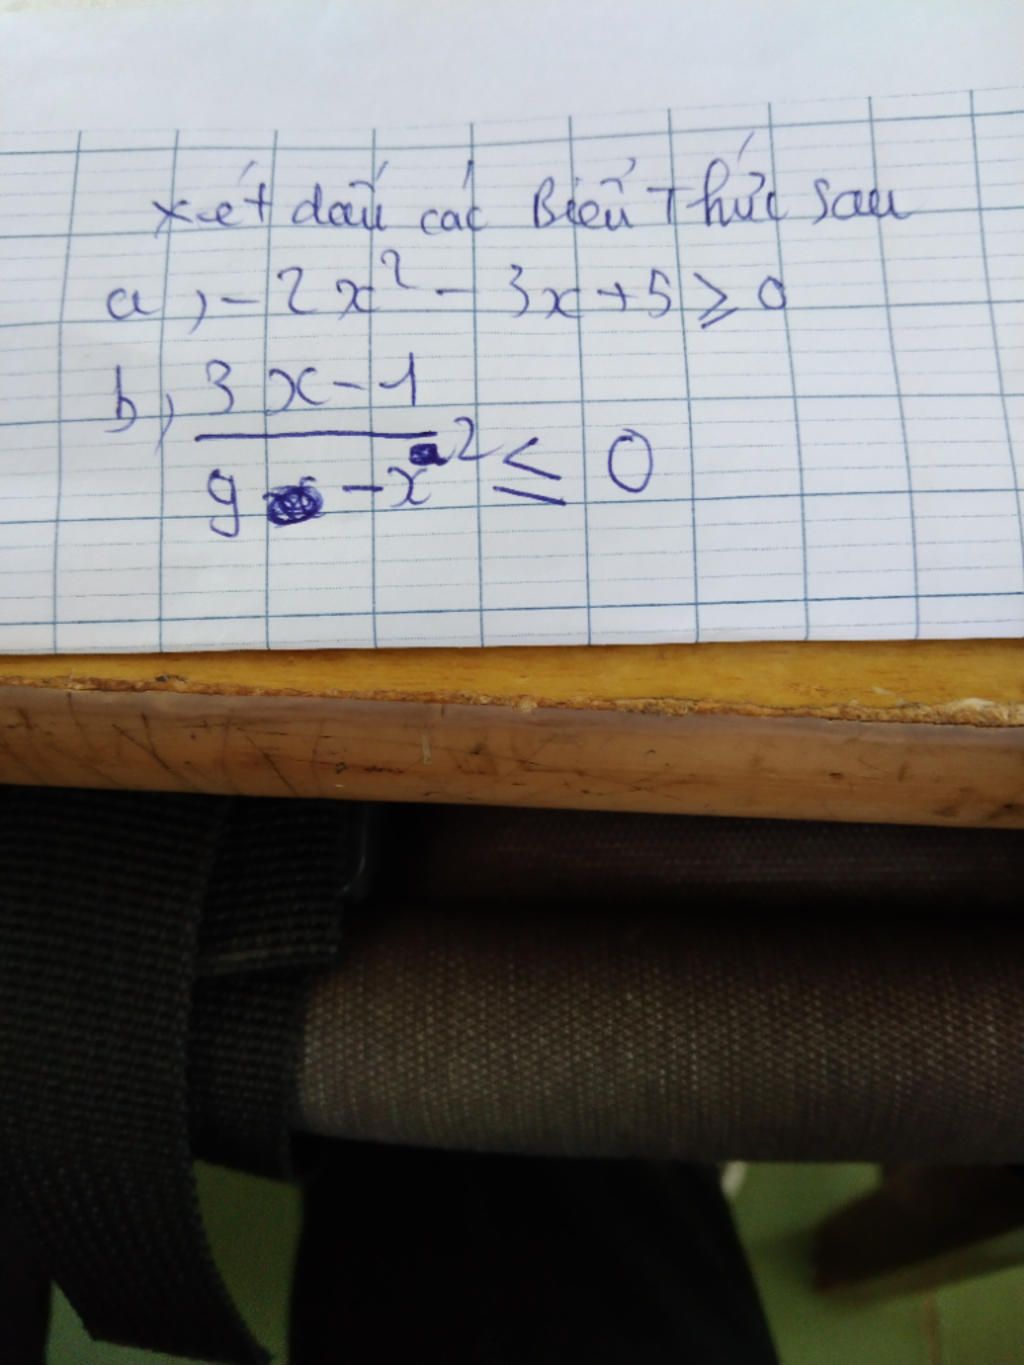 xét dấu các Biểu Thức sau
a, -2x² - 3x + 5 ≥ 0
b, 3x - 1
9 - x² ≤ 0